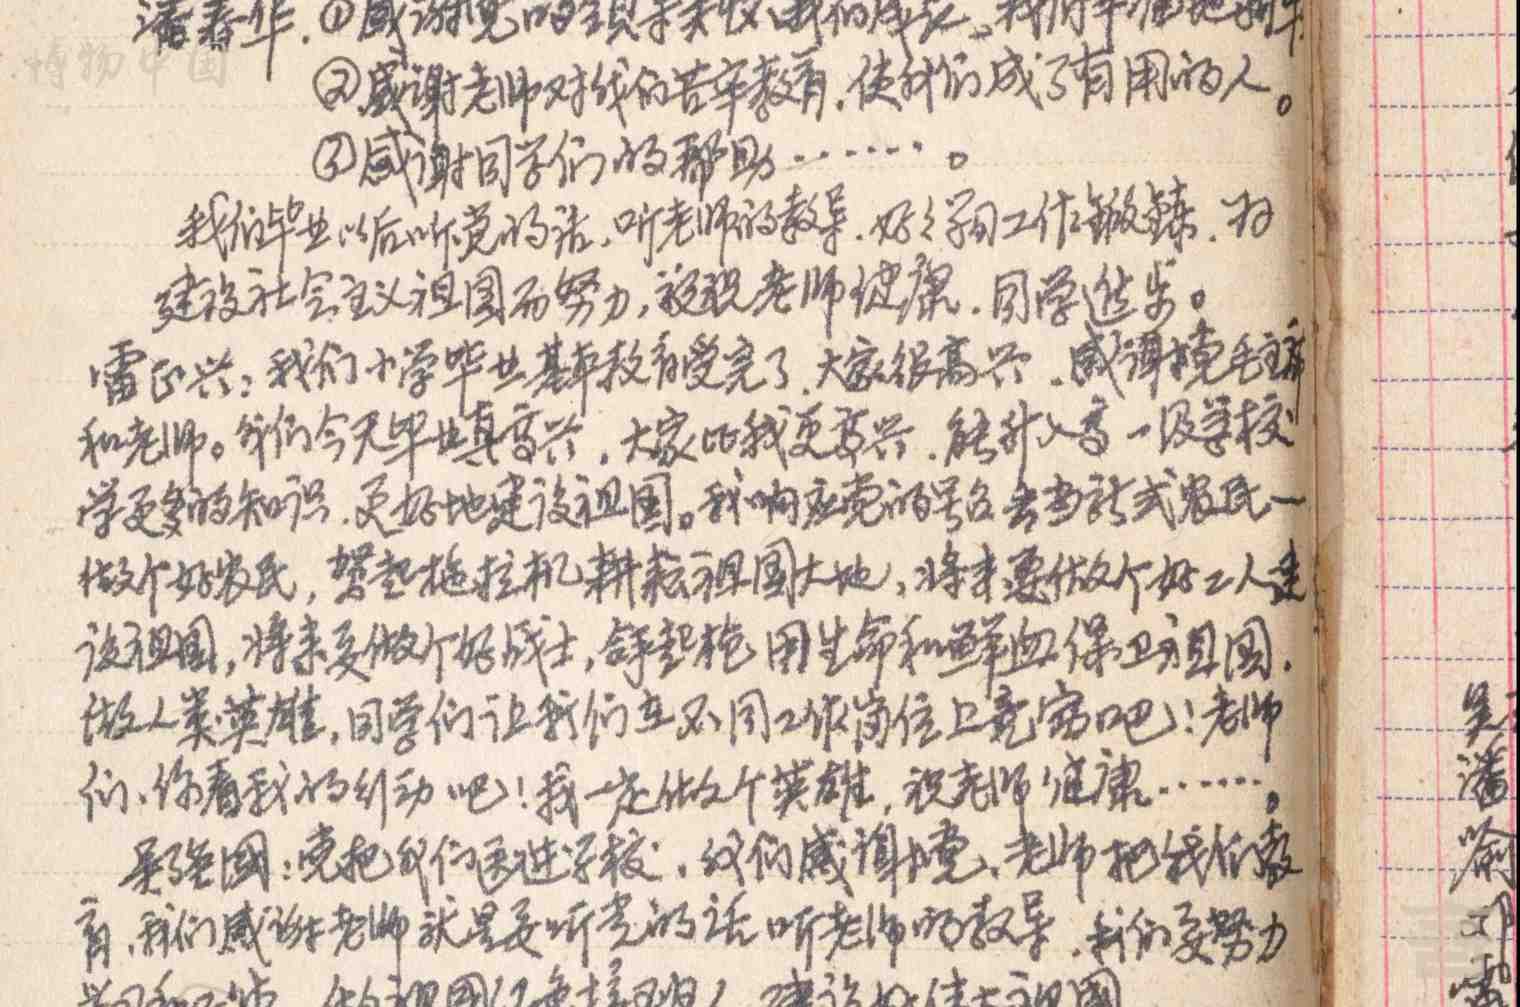 博物中国
潘春华.①感谢党的领导
②感谢老师对我们苦辛教育.使我们成了有用的人。
③感谢同学们的帮助……。
我们毕业以后听党的话.听老师的教导.好好学习工作锻鍊.为
建设社会主义祖国而努力,祝老师健康.同学进步。
雷正兴:我们小学毕业基本教育受完了.大家很高兴.感谢党毛主席
和老师。我们今天毕业真高兴.大家比我更高兴.能升入高一级学校
学更多的知识.更好地建设祖国。我响应党的号召去当新式农民一
做个好农民,驾起拖拉机耕耘祖国大地,将来要做个好工人建
设祖国,将来要做个好战士,拿起枪用生命和鲜血保卫祖国.
做人类英雄,同学们让我们在不同工作岗位上竞赛吧!老师
们、你看我的行动吧!我一定做个英雄,祝老师健康……。
吴强国:党把我们送进学校.我们感谢党、老师把我们教
育.我们感谢老师就是要听党的话听老师的教导.我们要努力
学习
祖国
潘
喻